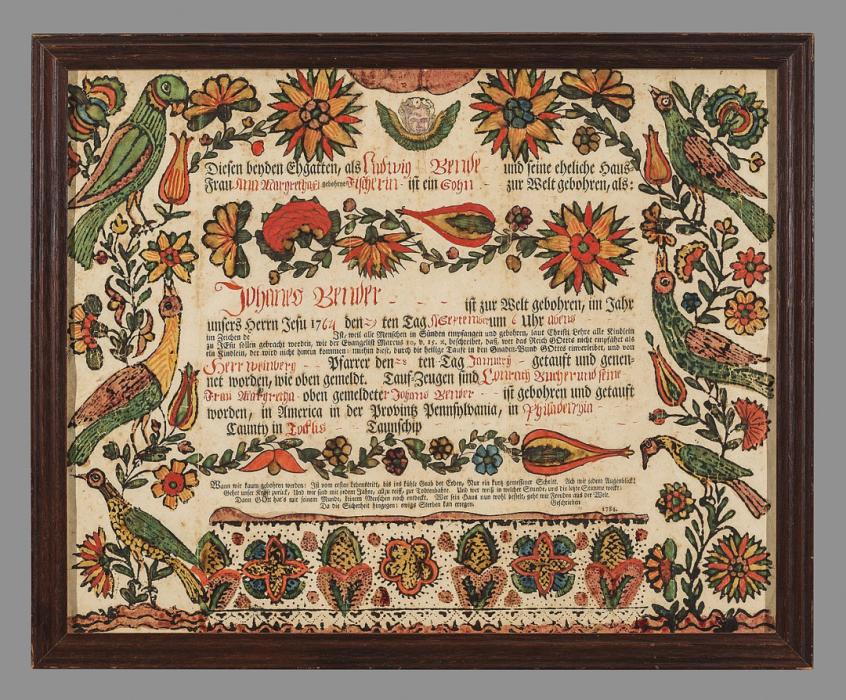 Diesen beyden Ehgatten, als Ludwig Bender und seine eheliche Haus-
Frau Ann Margretha gebohrne Fischerin ist ein Sohn zur Welt gebohren, als:
Johanes Bender ist zur Welt gebohren, im Jahr
unsers Herrn Jesu 1764 den 29 ten Tag September um 6 Uhr abens
im Zeichen de Ist, weil alle Menschen in Sünden empfangen und gebohren, laut Christi Lehre alle Kindlein
zu JEsu sollen gebracht werden, wie der Evangelist Marcus 10, v. 15. 2, beschreibet, daß, wer das Reich GOttes nicht empfähet als
ein Kindlein, der wird nicht hinein kommen: mithin diese, durch die heilige Taufe in den Gnaden-Bund GOttes einverleibet, und von
Herr Weinberg Pfarrer den ten Tag Januarij getauft und genen-
net worden, wie oben gemeldt. Tauf-Zeugen sind Conrath Bucher und seine
Frau Margretha oben gemeldeter Johans Bender ist gebohren und getauft
worden, in America in der Provintz Pennsylvania, in
Caunty in Taunschip
Wann wir kaum gebohren werden: Ist vom ersten Lebenstritt, bis ins kühle Grab der Erden, Nur ein kurtz gemessener Schritt. Ach mit jedem Augenblick!
Gehet unser Kraft zurück, Und wir sind mit jedem Jahre, allzu reiff, zur Todtenbahre. Und wer weiß in welcher Stunde, uns die letzte Stimme weckt:
Dann GOtt hat's mit seinem Munde, keinem Menschen noch entdeckt. Wer sein Haus nun wohl bestelt, geht mit Freuden aus der Welt.
Da die Sicherheit hingegen: ewigs Sterben kan erregen. Geschrieben
1784.